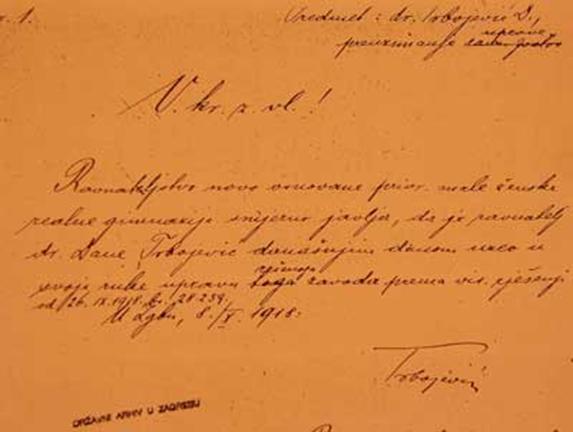 r. 1.
Predmet : dr. Trbojević D.,
uprave
preuzimanje
V. kr. z. vl. !
Ravnateljstvo novo osnovane priv. male ženske
realne gimnazije smjerno javlja, da je ravnatelj
dr. Dane Trbojević današnjim danom uzeo u
svoje ruke upravu toga zavoda prema vis. rješenju
od 26. IX. 1918. br. 28 239.
U Zgbu, 8./X. 1918.
Trbojević
DRŽAVNI ARHIV U ZAGREBU